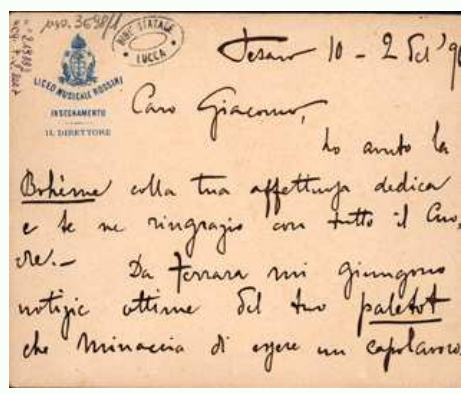 mso. 3698/1
BIBL. STATALE
LUCCA
LICEO MUSICALE ROSSINI
INSEGNAMENTO
IL DIRETTORE
Pesaro 10 - 2
Caro Giacomo,
ho avuto la
Bohème colla tua affettuosa dedica
e te ne ringrazio con tutto il Cuo,
re. - Da Ferrara mi giungono
notizie ottime del tuo paletot
che minaccia di essere un capolavoro.